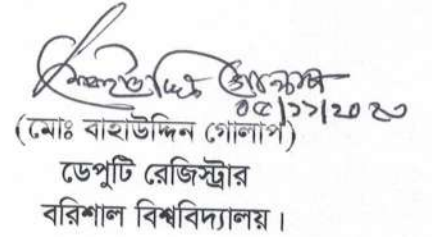 ০৫/১১/২০২০
(মোঃ বাহাউদ্দিন গোলাপ)
ডেপুটি রেজিস্ট্রার
বরিশাল বিশ্ববিদ্যালয়।